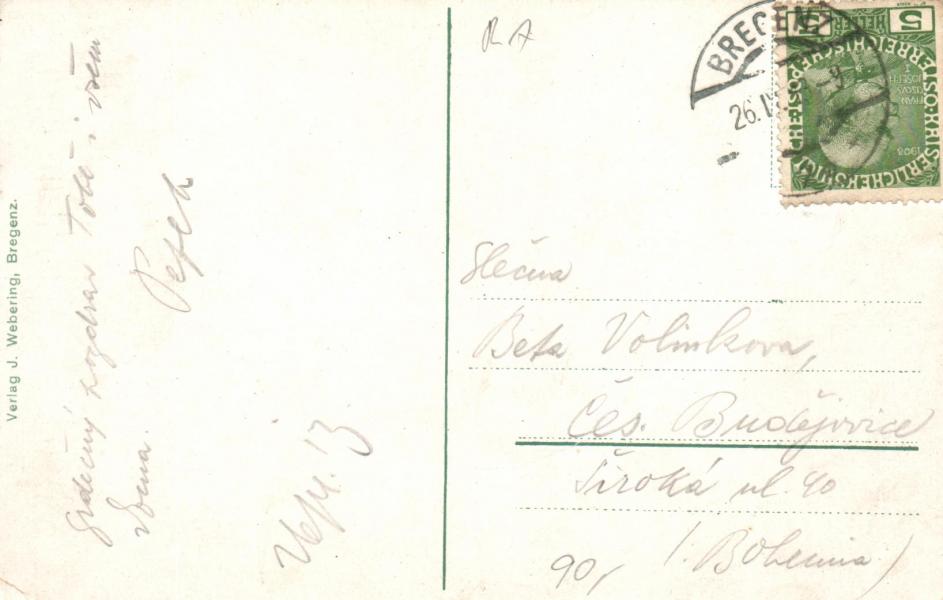 Verlag J. Webering, Bregenz.
Srdečný pozdrav Tobě i všem
doma.
Pepek
BREGENZ
26.IV.
5 5
HELLER
KAISERLICHE KÖNIGLICHE ÖSTERREICHISCHE POST
FRANZ
JOSEPH
I
1908
Slečna
Beta Volinkova,
Čes. Budějovice
Široká ul. 40
(Bohemia)
90,